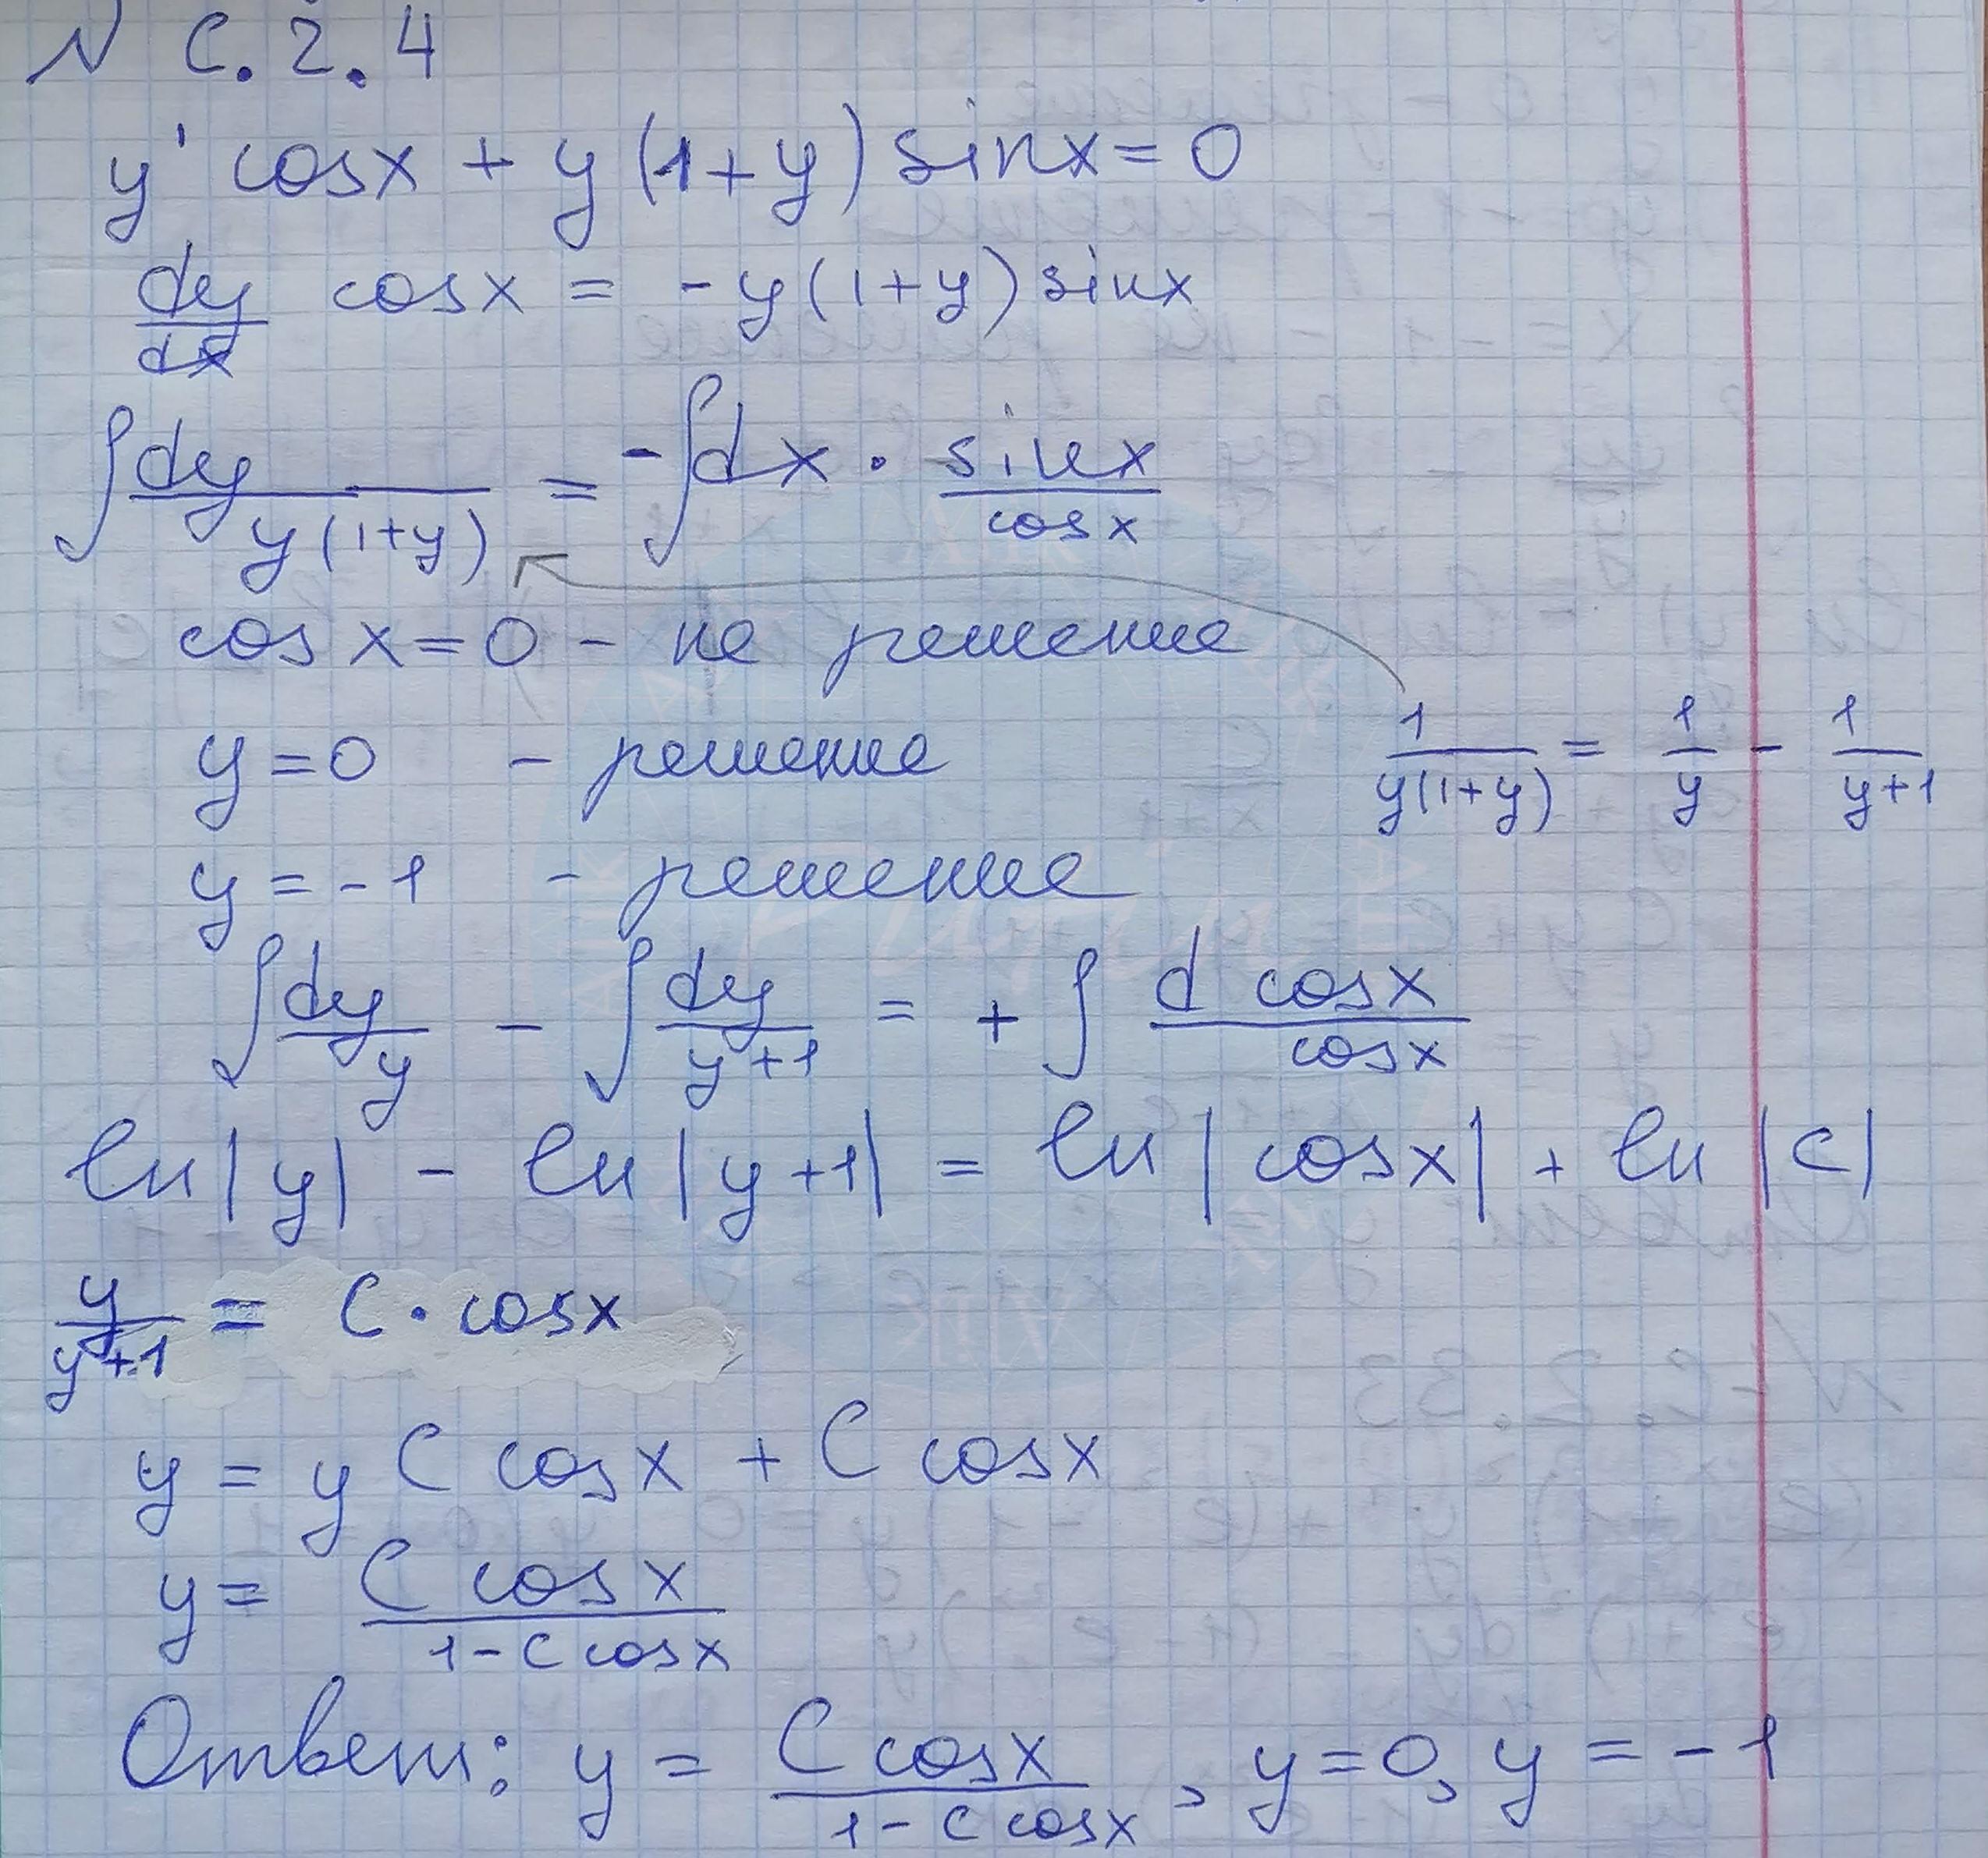 N С.2.4
y' cosx + y(1+y) sinx = 0
dy/dx cosx = -y(1+y) sinx
∫ dy/y(1+y) = -∫dx · sinx/cosx
cos x = 0 - не решение
y = 0 - решение
1/y(1+y) = 1/y - 1/y+1
y = -1 - решение
∫ dy/y - ∫ dy/y+1 = + ∫ d cosx/cosx
ln|y| - ln|y+1| = ln|cosx| + ln|C|
y/y+1 = C · cosx
y = y C cosx + C cosx
y = C cosx/1 - C cosx
Ответ: y = C cosx/1 - C cosx, y = 0, y = -1